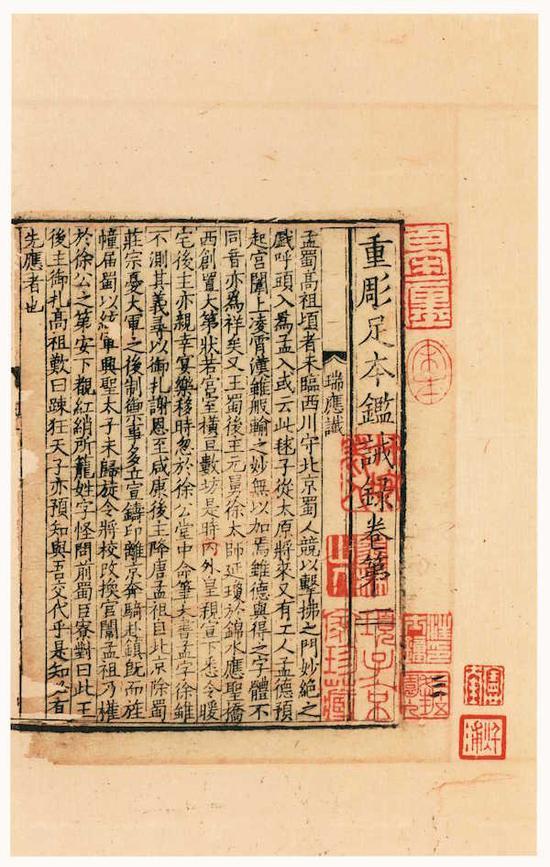 重彫足本鑑誡錄卷第一
瑞應讖
孟蜀高祖頃者未臨西川守北京蜀人競以擊拂之門妙絕之
戲呼頭入為孟入或云此毬子從太原將來又有工人孟德預
起宮闕上凌霄漢雖般輸之妙無以加焉雖德與得之字體不
同音亦為祥矣又王蜀後主元舅徐太師延瓊於錦水應聖橋
西創置大第狀若宮室橫亘數坊是時內外皇親宣下悉令暖
宅後主亦親幸宴樂移時忽於徐公堂中命筆大書孟字徐雖
不測其義尋以御札謝恩至咸康後主降唐孟祖自北京除蜀
莊宗憂大軍之後制御事多五宣鑄印離京奔騎赴鎮既而旌
幢屆蜀以軍興聖太子未歸旋令將校改換官闈孟祖乃權
於徐公之第安下觀紅綃所籠姓字怪問前蜀臣寮對曰此王
後主御札高祖歎曰踈狂天子亦預知與吾交代乎是知必有
先應者也
項子京
家珍藏